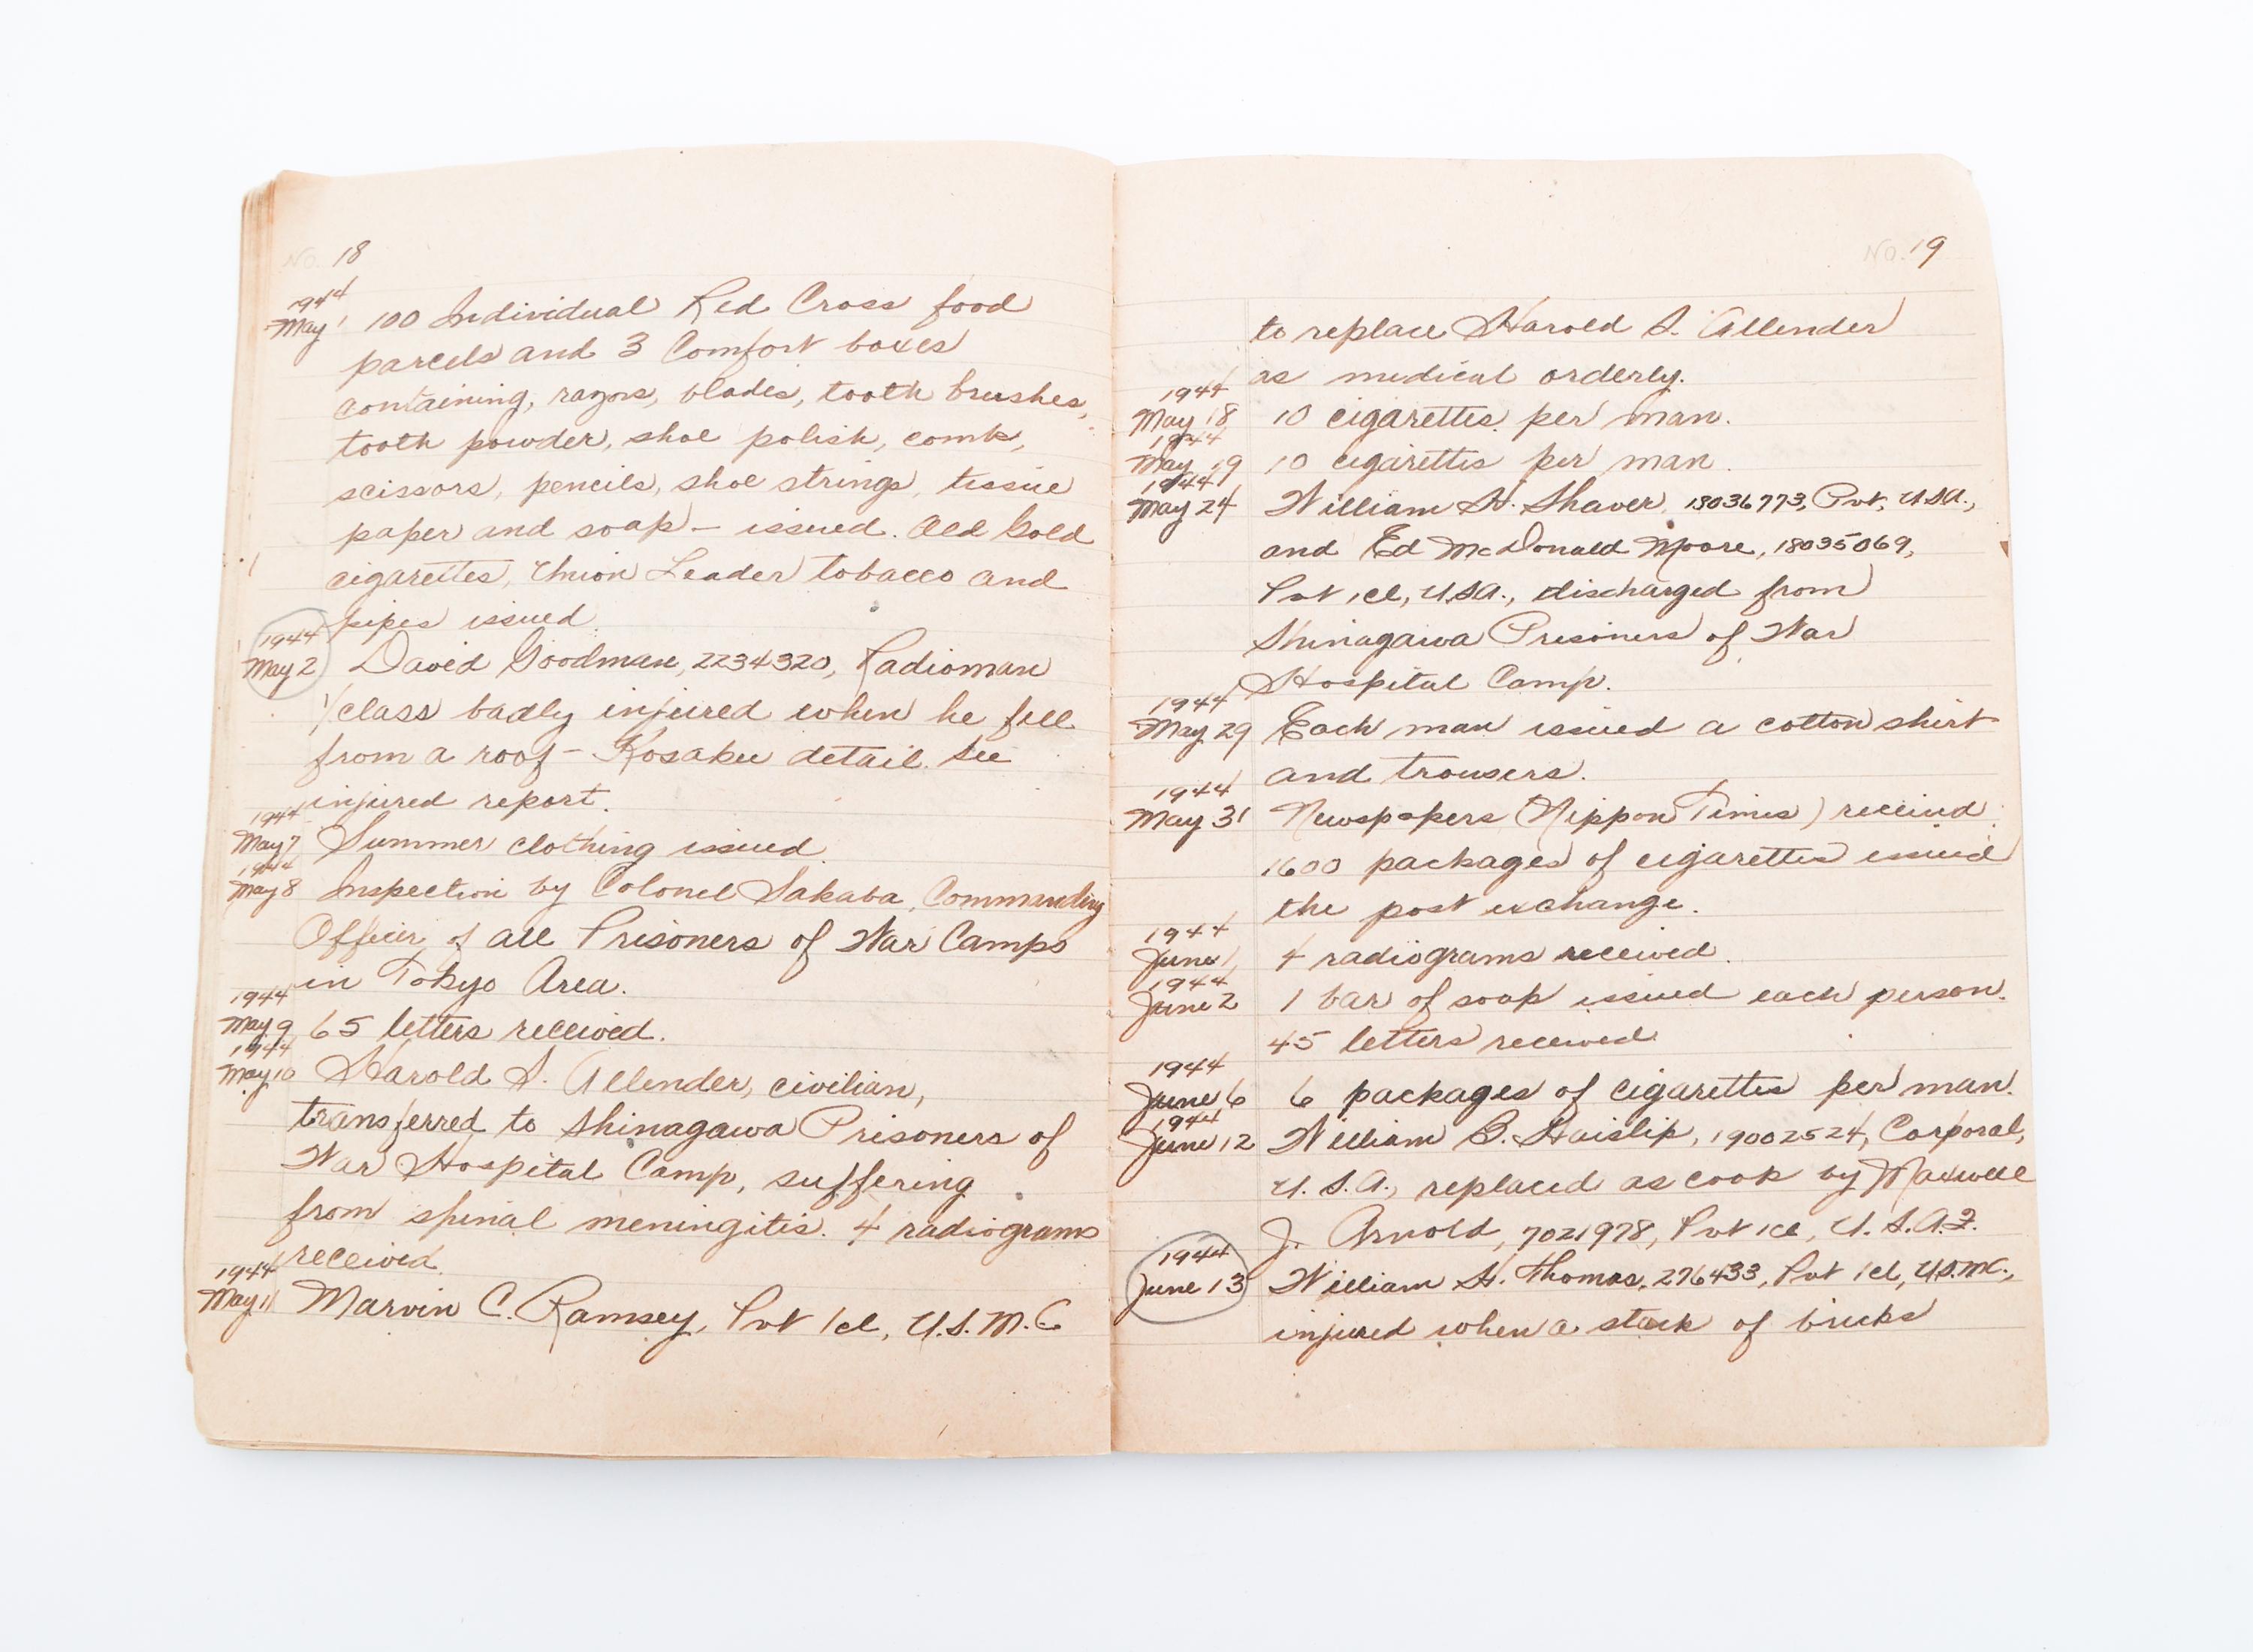 No. 18
1944
May 1 100 Individual Red Cross food
parcels and 3 Comfort boxes
containing, razors, blades, tooth brushes,
tooth powder, shoe polish, combs,
scissors, pencils, shoe strings, tissue
paper and soap - issued. Old Gold
cigarettes, Union Leader tobacco and
pipes issued.
1944
May 2 David Goodman, 2234320, Radioman
1/class badly injured when he fell
from a roof - Kosaku detail. See
injured report.
1944
May 7 Summer clothing issued.
1944
May 8 Inspection by Colonel Sakaba, Commanding
Officer of all Prisoners of War Camps
in Tokyo Area.
1944
May 9 65 letters received.
1944
May 10 Harold S. Allender, civilian,
transferred to Shinagawa Prisoners of
War Hospital Camp, suffering
from spinal meningitis. 4 radiograms
received.
1944
May 11 Marvin C. Ramsey, Pvt 1cl, U.S.M.C
No. 19
to replace Harold S. Allender
as medical orderly.
1944
May 18 10 cigarettes per man.
1944
May 19 10 cigarettes per man.
1944
May 24 William H. Shaver, 18036773, Pvt, U.S.A.,
and Ed McDonald Moore, 18035069,
Pvt 1cl, U.S.A., discharged from
Shinagawa Prisoners of War
Hospital Camp.
1944
May 29 Each man issued a cotton shirt
and trousers.
1944
May 31 Newspapers (Nippon Times) received.
1600 packages of cigarettes issued
the post exchange.
1944
June 1, 4 radiograms received.
1944
June 2 1 bar of soap issued each person.
45 letters received
1944
June 6 6 packages of cigarettes per man.
1944
June 12 William B. Haislip, 19002524, Corporal,
U.S.A., replaced as cook by Maxwell
J. Arnold, 7021978, Pvt 1cl, U.S.A.F.
1944
June 13 William H. Thomas, 276433, Pvt 1cl, U.S.M.C.,
injured when a stack of bricks